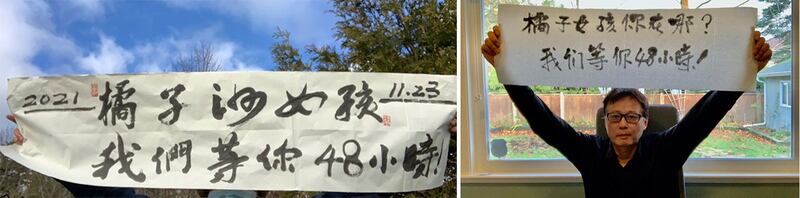 2021 橘子洲女孩 11.23
我們等你48小時!
橘子女孩你在哪?
我们等你48小時!